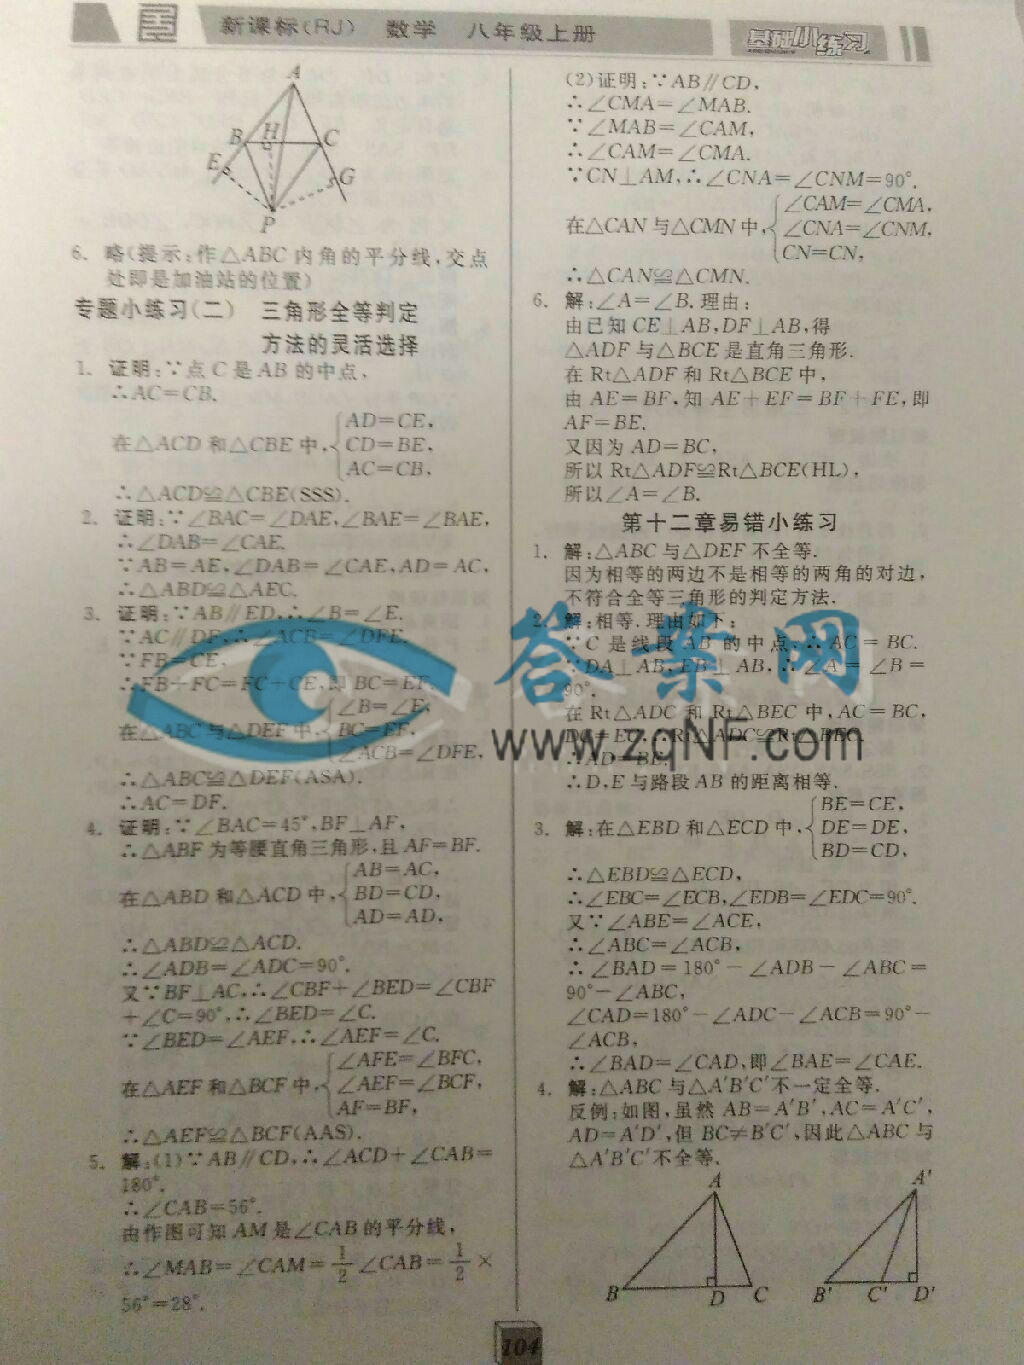 新课标(RJ) 数学 八年级上册
基础小练习
A
B H C
E G
P
6. 略(提示:作△ABC内角的平分线,交点
处即是加油站的位置)
专题小练习(二) 三角形全等判定
方法的灵活选择
1. 证明:∵点C是AB的中点,
∴AC=CB.
在△ACD和△CBE中,{AD=CE,
CD=BE,
AC=CB,
∴△ACD≌△CBE(SSS).
2. 证明:∵∠BAC=∠DAE,∠BAE=∠BAE,
∴∠DAB=∠CAE.
∵AB=AE,∠DAB=∠CAE,AD=AC,
∴△ABD≌△AEC.
3. 证明:∵AB∥ED,∴∠B=∠E.
∵AC∥DF,∴∠ACB=∠DFE.
∵FB=CE,
∴FB+FC=FC+CE,即BC=EF.
在△ABC与△DEF中,{∠B=∠E,
BC=EF,
∠ACB=∠DFE,
∴△ABC≌△DEF(ASA).
∴AC=DF.
4. 证明:∵∠BAC=45°,BF⊥AF,
∴△ABF为等腰直角三角形,且AF=BF.
在△ABD和△ACD中,{AB=AC,
BD=CD,
AD=AD,
∴△ABD≌△ACD.
∴∠ADB=∠ADC=90°.
又∵BF⊥AC,∴∠CBF+∠BED=∠CBF
+∠C=90°,∴∠BED=∠C.
∵∠BED=∠AEF,∴∠AEF=∠C.
在△AEF和△BCF中,{∠AFE=∠BFC,
∠AEF=∠BCF,
AF=BF,
∴△AEF≌△BCF(AAS).
5. 解:(1)∵AB∥CD,∴∠ACD+∠CAB=
180°.
∴∠CAB=56°.
由作图可知AM是∠CAB的平分线,
∴∠MAB=∠CAM=1/2∠CAB=1/2×
56°=28°.
(2)证明:∵AB∥CD,
∴∠CMA=∠MAB.
∵∠MAB=∠CAM,
∴∠CAM=∠CMA.
∵CN⊥AM,∴∠CNA=∠CNM=90°.
在△CAN与△CMN中,{∠CAM=∠CMA,
∠CNA=∠CNM,
CN=CN,
∴△CAN≌△CMN.
6. 解:∠A=∠B.理由:
由已知CE⊥AB,DF⊥AB,得
△ADF与△BCE是直角三角形.
在Rt△ADF和Rt△BCE中,
由AE=BF,知AE+EF=BF+FE,即
AF=BE.
又因为AD=BC,
所以Rt△ADF≌Rt△BCE(HL),
所以∠A=∠B.
第十二章易错小练习
1. 解:△ABC与△DEF不全等.
因为相等的两边不是相等的两角的对边,
不符合全等三角形的判定方法.
2. 解:相等.理由如下:
∵C是线段AB的中点,∴AC=BC.
∵DA⊥AB,EB⊥AB,∴∠A=∠B=
90°.
在Rt△ADC和Rt△BEC中,AC=BC,
DC=EC,∴Rt△ADC≌Rt△BEC.
∴AD=BE.
∴D,E与路段AB的距离相等.
3. 解:在△EBD和△ECD中,{BE=CE,
DE=DE,
BD=CD,
∴△EBD≌△ECD,
∴∠EBC=∠ECB,∠EDB=∠EDC=90°.
又∵∠ABE=∠ACE,
∴∠ABC=∠ACB,
∴∠BAD=180°-∠ADB-∠ABC=
90°-∠ABC,
∠CAD=180°-∠ADC-∠ACB=90°-
∠ACB,
∴∠BAD=∠CAD,即∠BAE=∠CAE.
4. 解:△ABC与△A′B′C′不一定全等.
反例:如图,虽然AB=A′B′,AC=A′C′,
AD=A′D′,但BC≠B′C′,因此△ABC与
△A′B′C′不全等.
A A′
B D C B′ C′ D′
104
答案网
www.zqNF.com